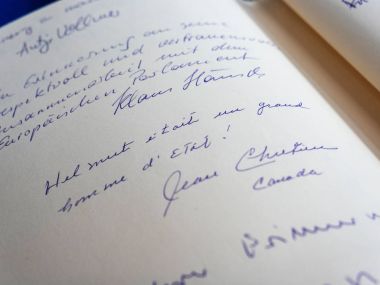 Antje Vollmer
In Erinnerung an seine
respektvoll und vertrauensvolle
Zusammenarbeit mit dem
Europäischen Parlament
Klaus Hänsch
Helmut était un grand
homme d'État !
Jean Chrétien
Canada